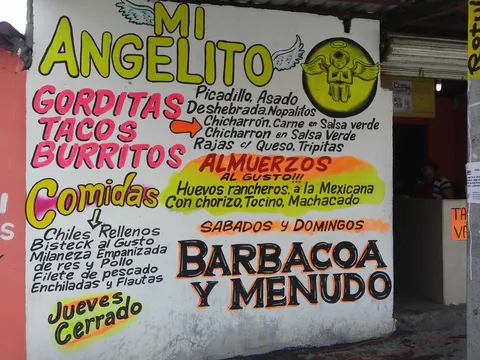 MI
ANGELITO
GORDITAS
TACOS
BURRITOS
Picadillo, Asado
Deshebrada, Nopalitos
Chicharrón, Carne en Salsa verde
Chicharron en Salsa Verde
Rajas c/ Queso, Tripitas
ALMUERZOS
AL GUSTO!!!
Huevos rancheros, a la Mexicana
Con chorizo, Tocino, Machacado
Comidas
Chiles Rellenos
Bisteck al Gusto
Milaneza Empanizada
de res y Pollo
Filete de pescado
Enchiladas y Flautas
SABADOS y DOMINGOS
BARBACOA
Y MENUDO
Jueves
Cerrado